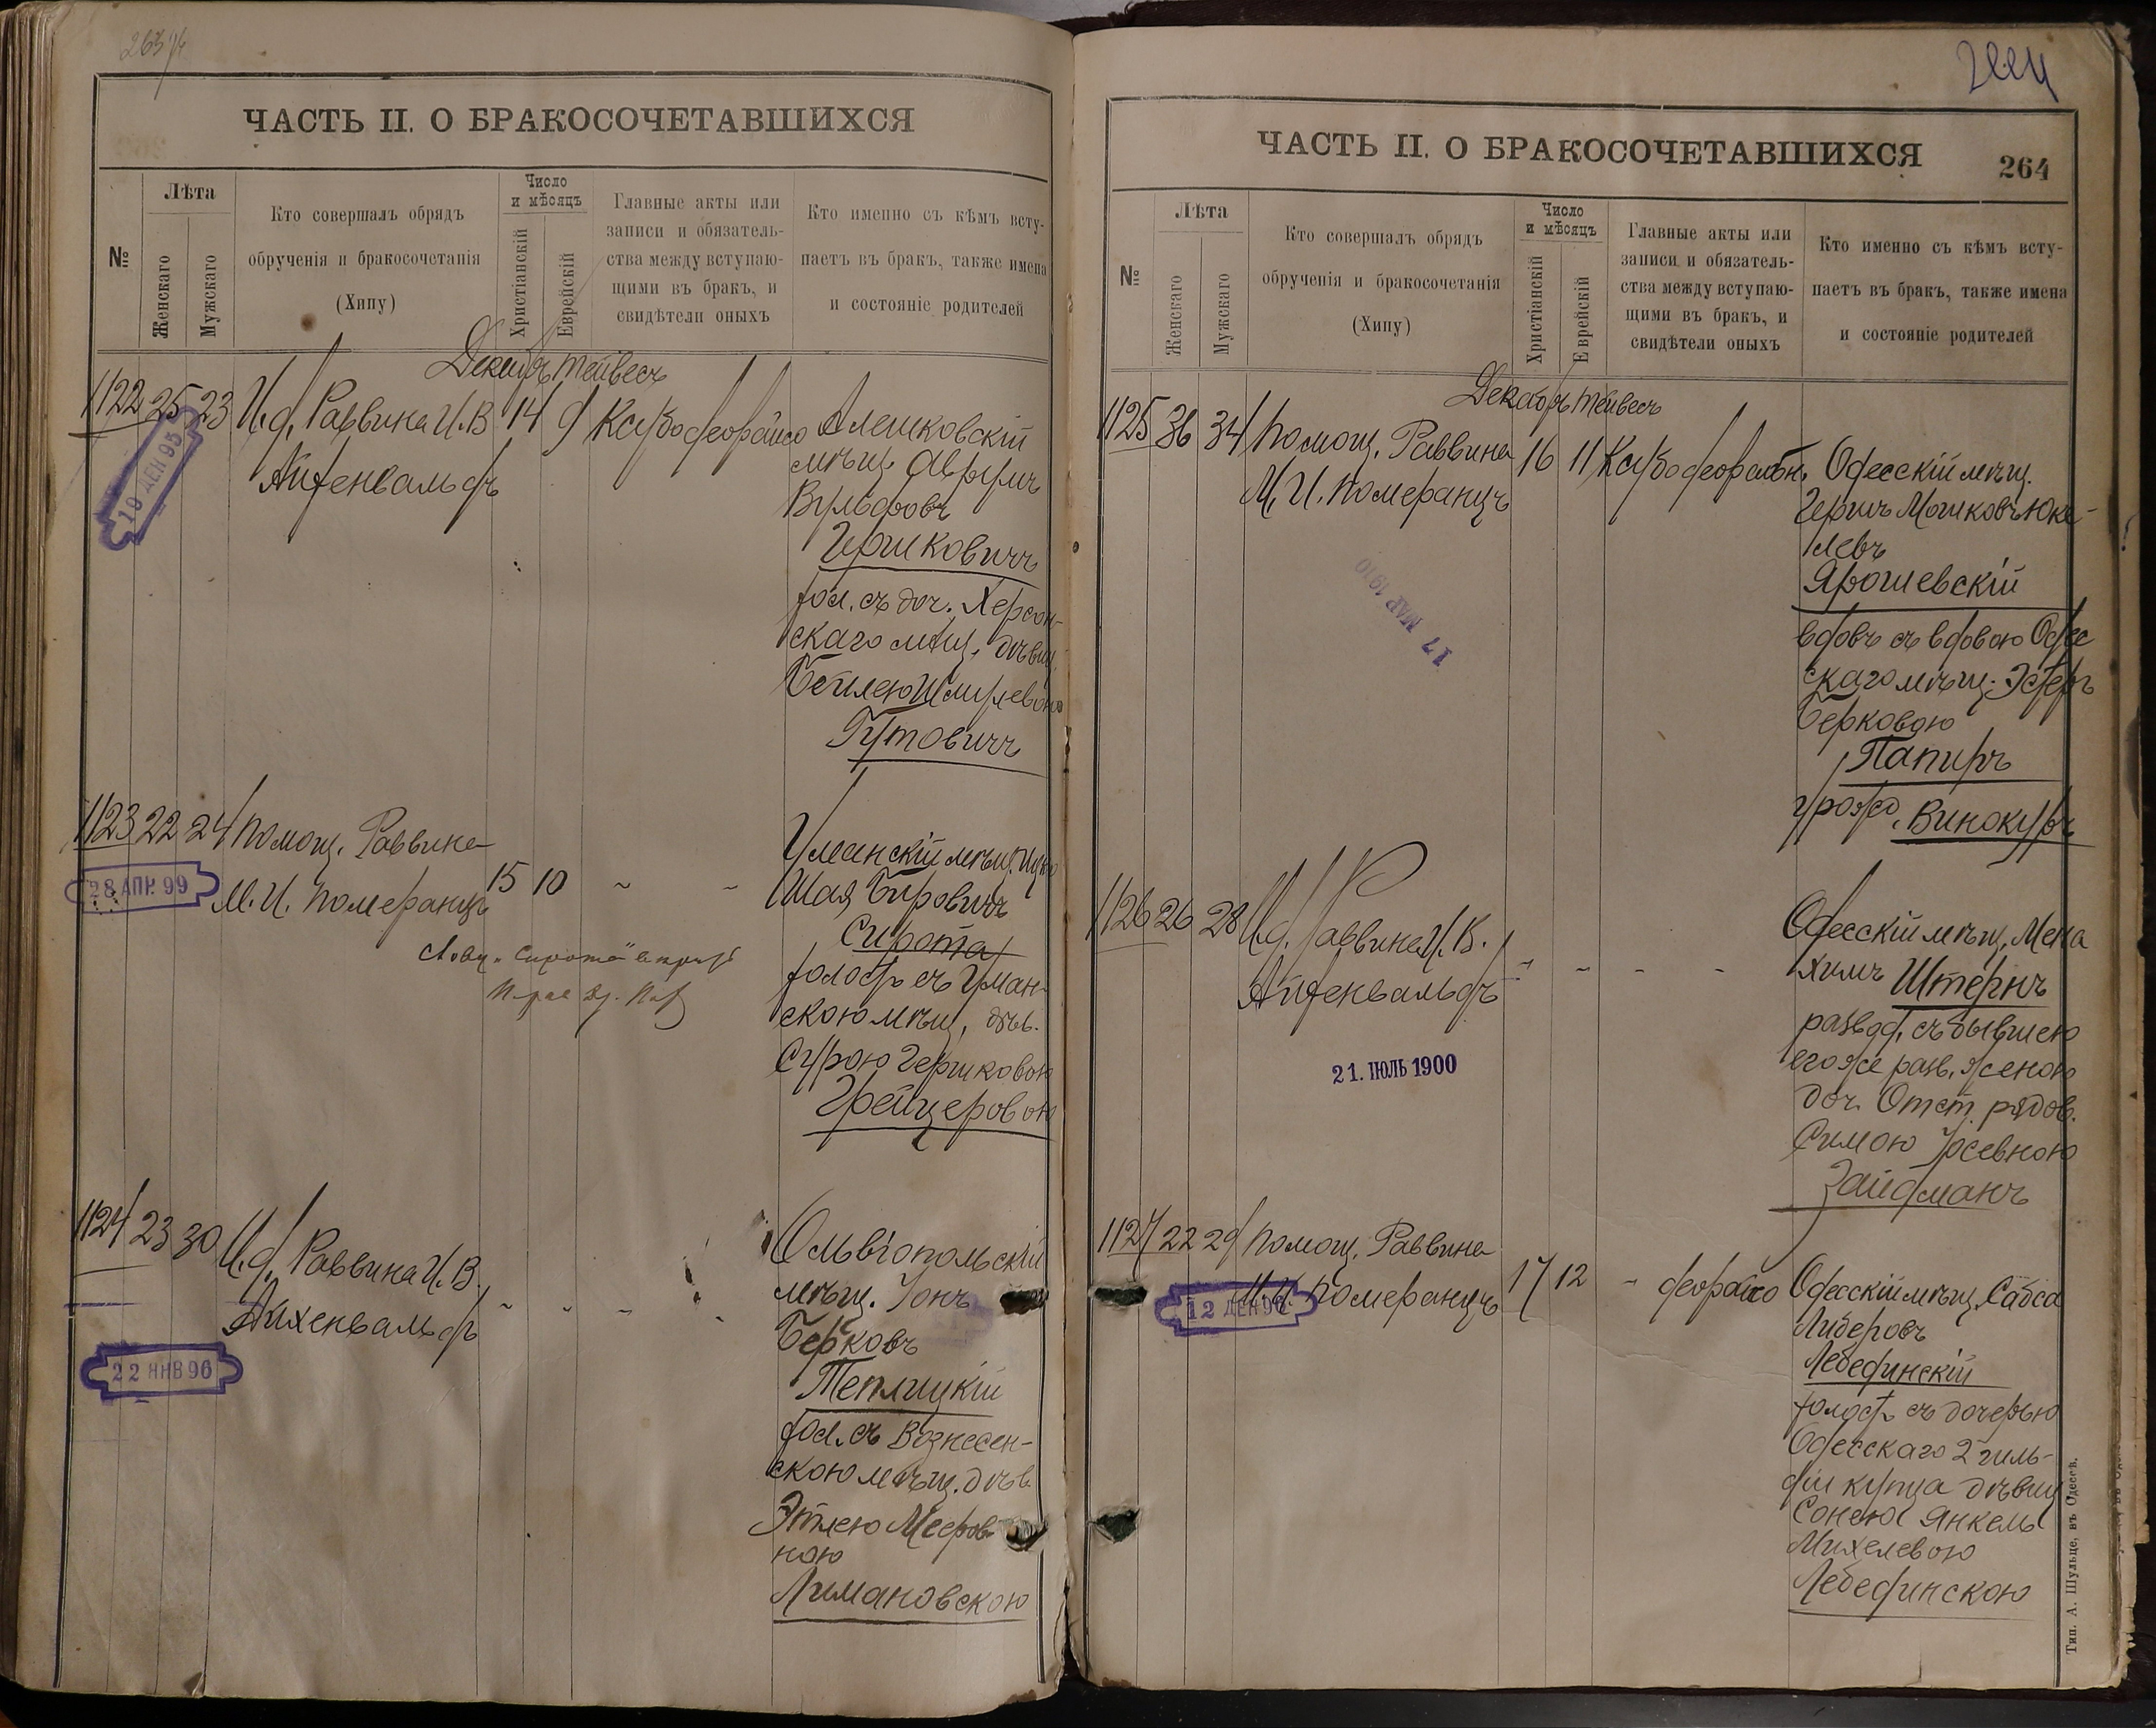 ЧАСТЬ II. О БРАКОСОЧЕТАВШИХСЯ
№
Лѣта
Женскаго
Мужскаго
Кто совершалъ обрядъ
обрученія и бракосочетанія
(Хипу)
Число
и мѣсяцъ
Христіанскій
Еврейскій
Главные акты или
записи и обязатель-
ства между вступаю-
щими въ бракъ, и
свидѣтели оныхъ
Кто именно съ кѣмъ всту-
паетъ въ бракъ, также имена
и состояніе родителей
Декабрь Тейвесъ
1122 25 23 И.д. Раввина И.В.
Айхенвальдъ
14 9
19 ДЕН 95
Алешковскій
мѣщ. Аврумъ
Вульфовъ
Гершковичъ
хол. съ доч. Херсон-
скаго мѣщ. дѣвиц.
Бейлею Шмулевою
Гутовичъ
1123 22 24 Помощ. Раввина
М. И. Померанцъ
15 10 ~ ~
28 АПР. 99
Уманскій мѣщ. Ицко
Шая Боровичъ
Сирота
холост. съ Уман-
скою мѣщ. дѣв.
Сурою Гершковою
Грейцеровою
1124 23 30 И.д. Раввина И.В.
Айхенвальдъ
22 ЯНВ 96
Ольвіопольскій
мѣщ. Іонъ
Берковъ
Теплицкій
хол. съ Вознесен-
скою мѣщ. дѣв.
Этлею Мееров-
ною
Лимановскою
ЧАСТЬ II. О БРАКОСОЧЕТАВШИХСЯ
264
№
Лѣта
Женскаго
Мужскаго
Кто совершалъ обрядъ
обрученія и бракосочетанія
(Хипу)
Число
и мѣсяцъ
Христіанскій
Еврейскій
Главные акты или
записи и обязатель-
ства между вступаю-
щими въ бракъ, и
свидѣтели оныхъ
Кто именно съ кѣмъ всту-
паетъ въ бракъ, также имена
и состояніе родителей
Декабрь Тейвесъ
1125 36 34 Помощ. Раввина
М. И. Померанцъ
16 11
17 МАР 1910
Одесскій мѣщ.
Гершъ Мошковъ Юке-
левъ
Ярошевскій
вдовъ съ вдовою Одес
скаго мѣщ. Эстеръ
Берковою
Папиръ
урожд. Винокуръ
1126 26 28 И.д. Раввина И.В.
Айхенвальдъ
21. ІЮЛЬ 1900
Одесскій мѣщ. Мена
химъ Штернъ
развод. съ бывшею
его же разв. женою
доч. Отст. рядов.
Симою Іосевною
Зайдманъ
1127 22 29 Помощ. Раввина
М. И. Померанцъ
17 12
12 ДЕН 96
Одесскій мѣщ. Сабса
Либеровъ
Лебединскій
холост. съ дочерью
Одесскаго 2 гиль-
діи купца дѣвиц
Сонею Янкель
Михелевою
Лебединскою
Тип. А. Шульце, въ Одессѣ.